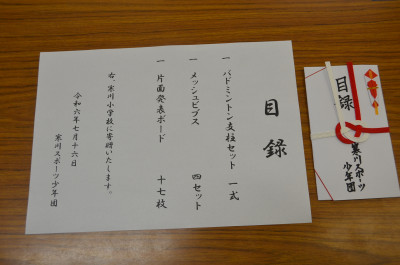 目録
一 バドミントン支柱セット 一式
一 メッシュビブス 四セット
一 片面発表ボード 十七枚
右、寒川小学校に寄贈いたします。
令和六年七月十六日
寒川スポーツ少年団
目録
寒川スポーツ少年団